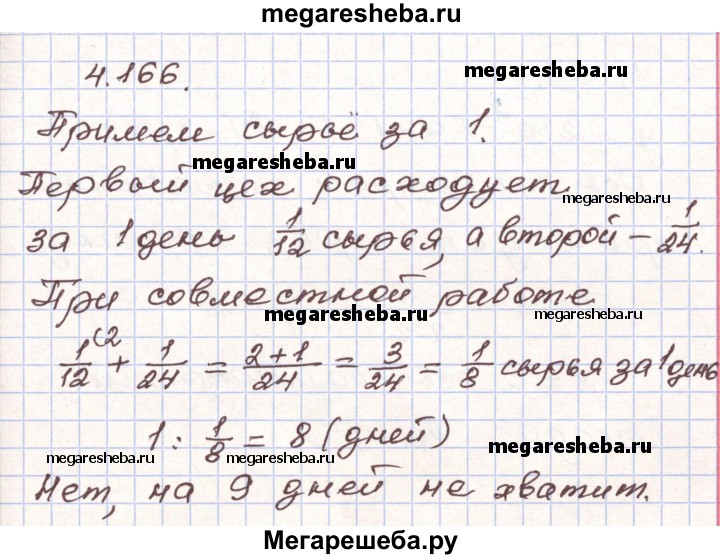 megaresheba.ru
4.166.
megaresheba.ru
Примем сырьё за 1.
megaresheba.ru
Первый цех расходует
megaresheba.ru
за 1 день 1/12 сырья, а второй – 1/24.
При совместной работе
megaresheba.ru
1/12 (2 + 1/24 = 2+1/24 = 3/24 = 1/8 сырья за 1 день
1 : 1/8 = 8 (дней)
megaresheba.ru megaresheba.ru megaresheba.ru
Нет, на 9 дней не хватит.
Мегарешеба.ру